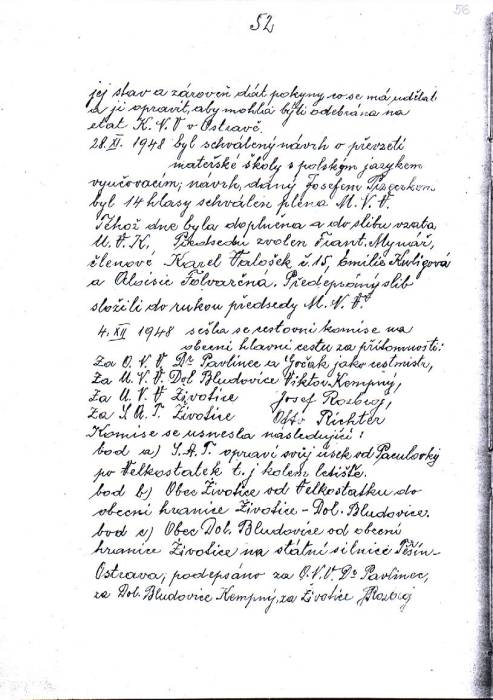 52
56
její stav a zároveň dát pokyny co se má udělat
a ji opravit, aby mohla býti odebrána na
etat K.N.V v Ostravě.
28.XI. 1948 byl schválený návrh o převzetí
mateřské školy s polským jazykem
vyučovacím; návrh daný Josefem
byl 14 hlasy schválen pléna M.N.V.
Téhož dne byla doplněna a do slibu vzata
Předsedu zvolen Frant. Mynář,
členové Karel Valošek č. 15, Emilie Kuligová
a Aloisie Folvarčna. Předepsaný slib
složili do rukou předsedy M.N.V.
4. XII 1948 sešla se cestovní komise na
obecní hlavní cestu za přítomnosti:
Za O.N.V Dr Pavlinec a Gočak jako cestmistr,
Za M.N.V. Dol Bludovice Viktor Kempný,
Za M.N.V Životice Josef Rozbroj,
Za S.A.T. Životice Otto Richter
Komise se usnesla následující:
bod a) S.A.T. opraví svůj úsek od
po Velkostatek t.j kolem letiště.
bod b) Obec Životice od Velkostatku do
obecní hranice Životice - Dol. Bludovice.
bod c) Obec Dol. Bludovice od obecní
hranice Životice na státní silnici Těšín-
Ostrava, podepsáno za O.N.V. Dr Pavlinec,
za Dol. Bludovice Kempný, za Životice Rozbroj